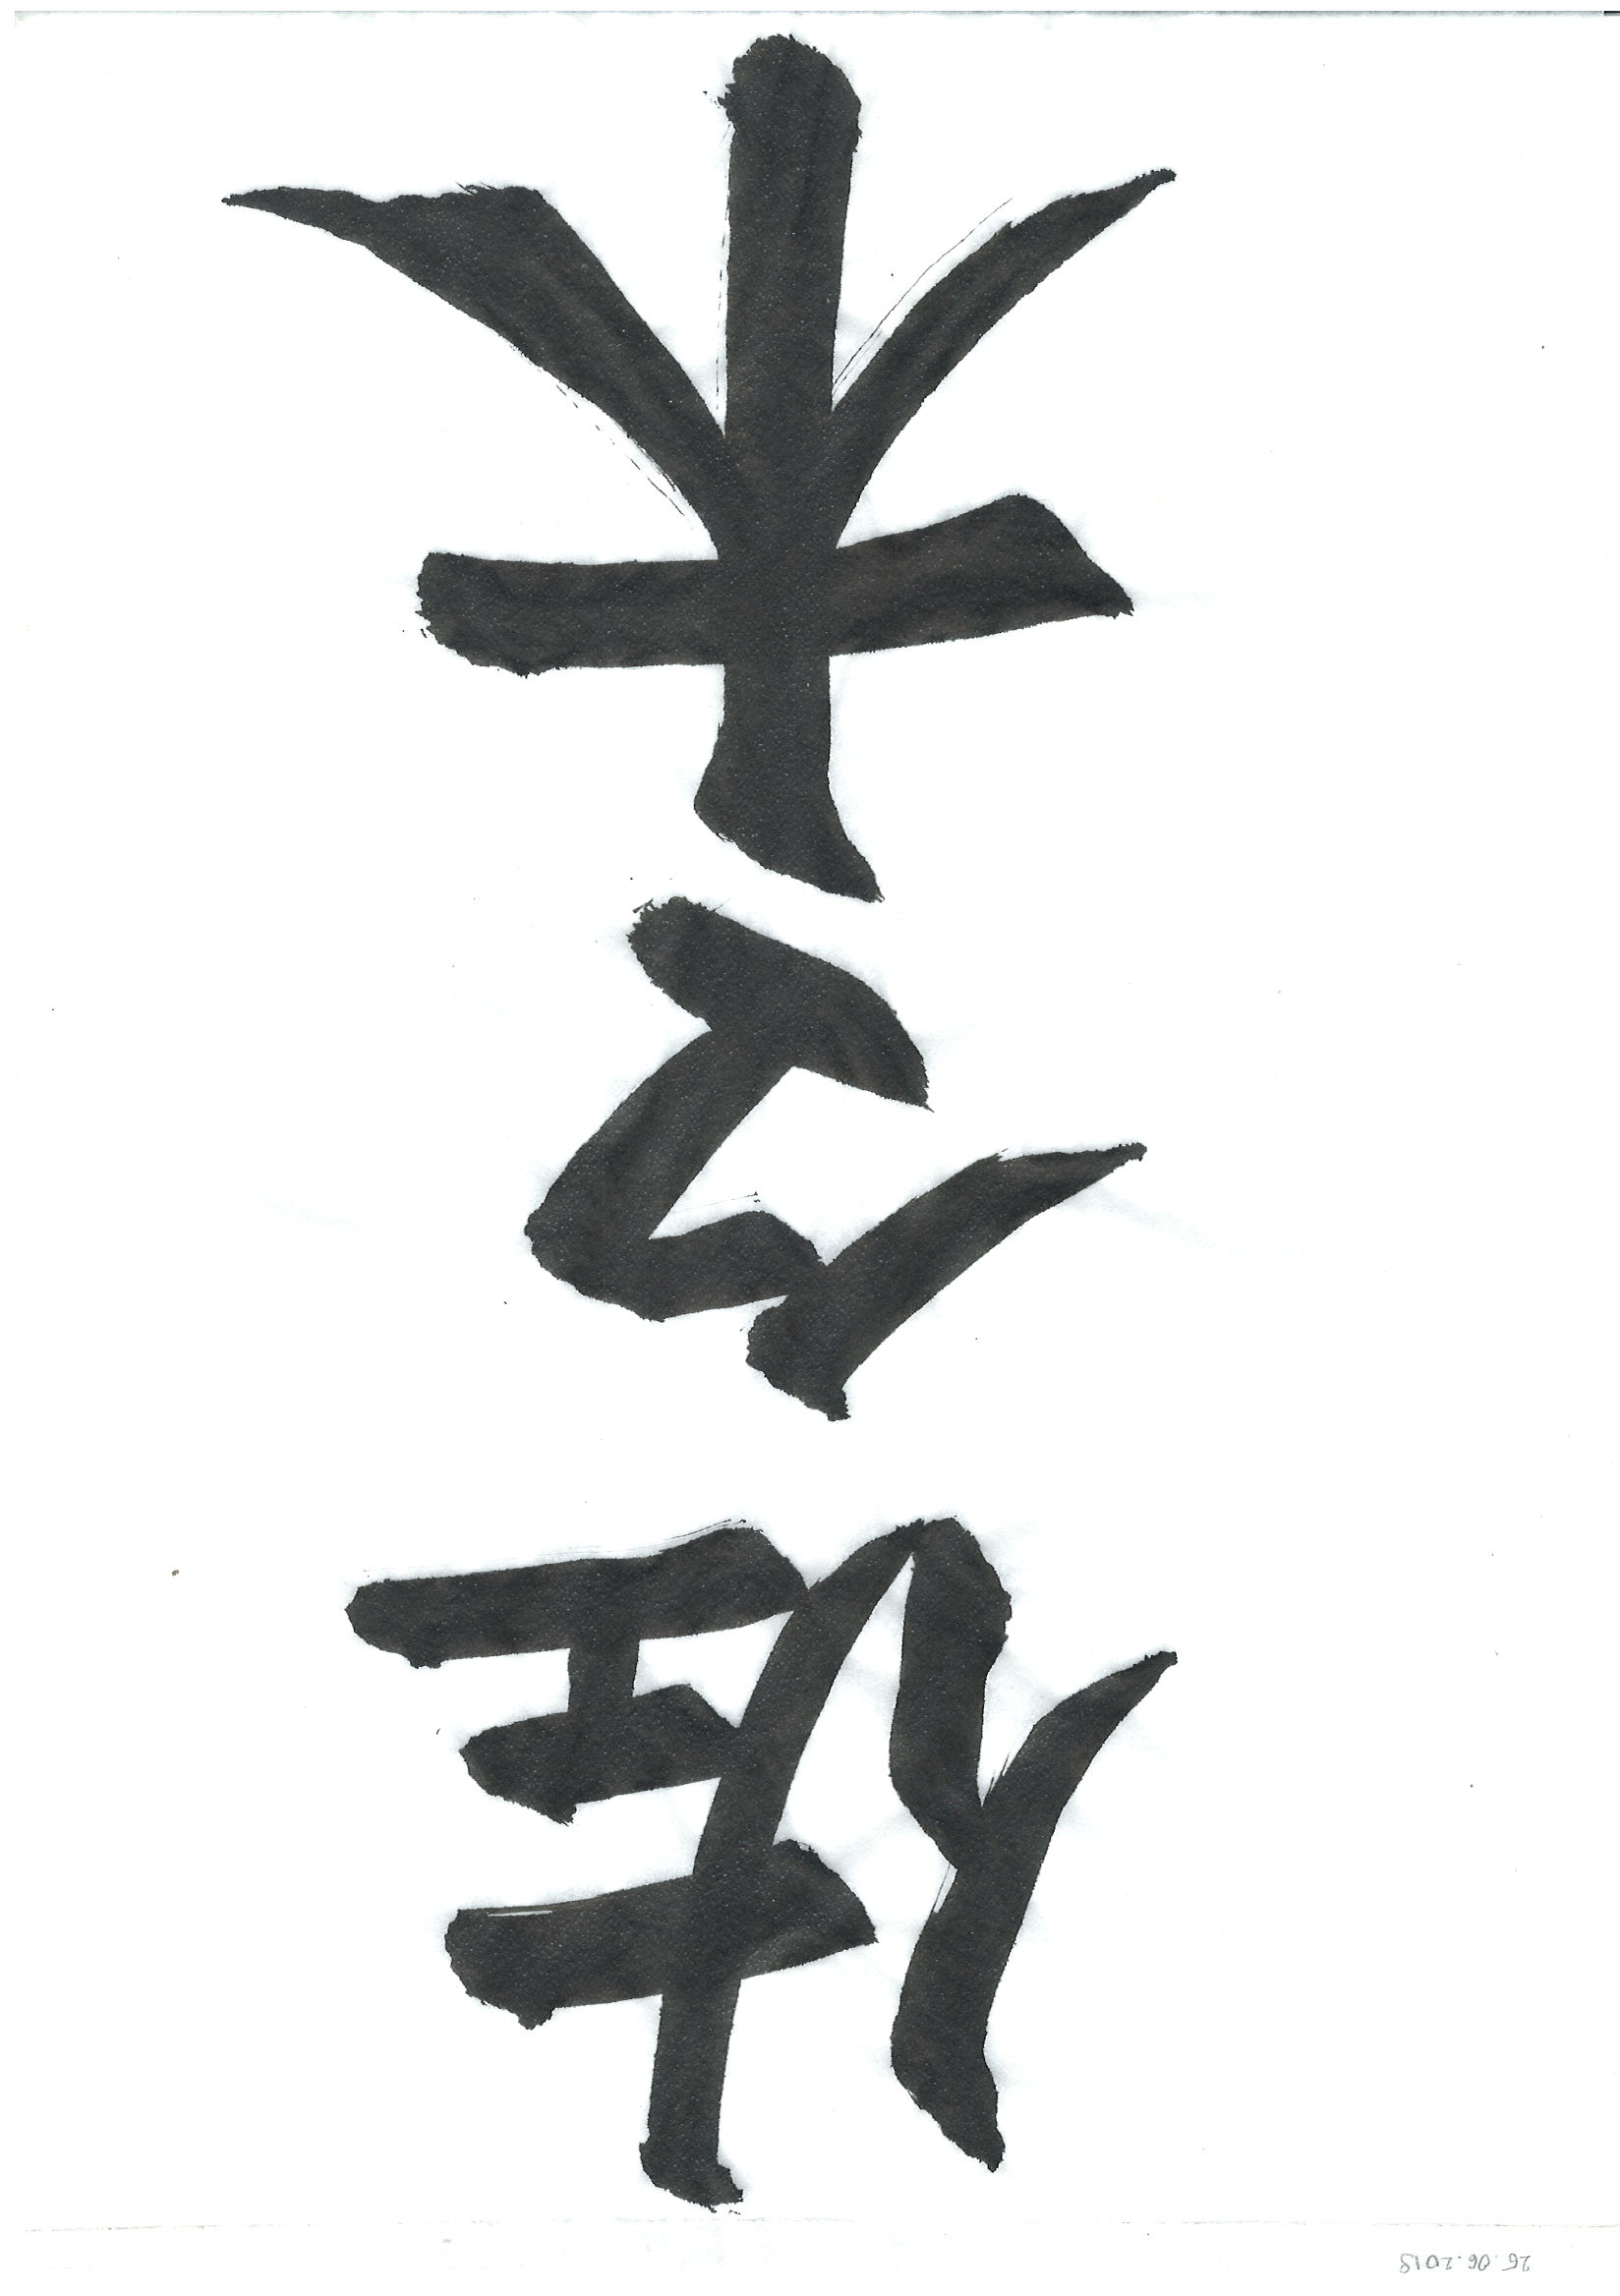 25.06.2019
佐々木